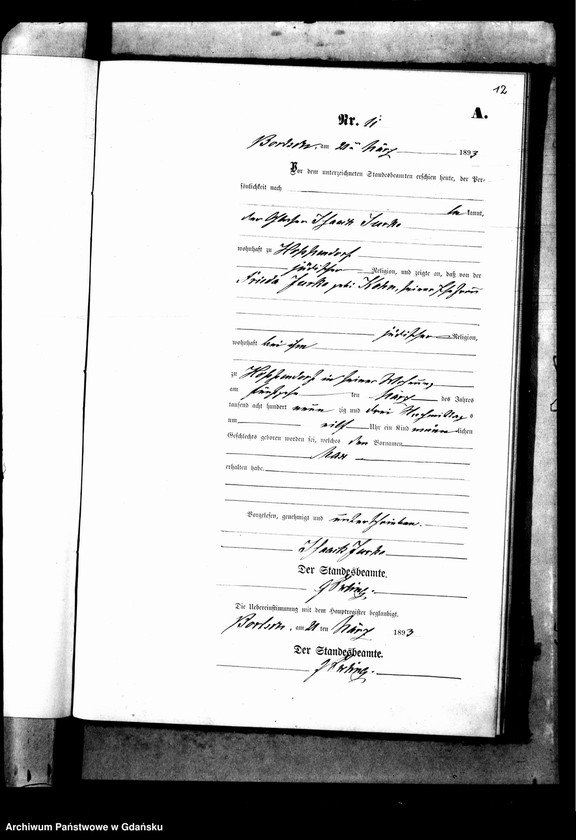 12
A.
Nr. 11
Borksken, am 21ten März 1893
Vor dem unterzeichneten Standesbeamten erschien heute, der Per-
sönlichkeit nach
be kannt,
der Glaser Isaack Jurke
wohnhaft zu Hoppendorf
jüdischer Religion, und zeigte an, daß von der
Frieda Jurke geb. Kohn, seiner Ehefrau
jüdischer Religion,
wohnhaft bei ihm
zu Hoppendorf in seiner Wohnung
am fünfzehn ten März des Jahres
tausend acht hundert neun zig und drei Nachmittags
um elf Uhr ein Kind männlichen
Geschlechts geboren worden sei, welches den Vornamen
Max
erhalten habe.
Vorgelesen, genehmigt und unterschrieben.
Isaack Jurke
Der Standesbeamte.
Die Uebereinstimmung mit dem Hauptregister beglaubigt.
am 21 ten März 1893
Der Standesbeamte.
Archiwum Państwowe w Gdańsku